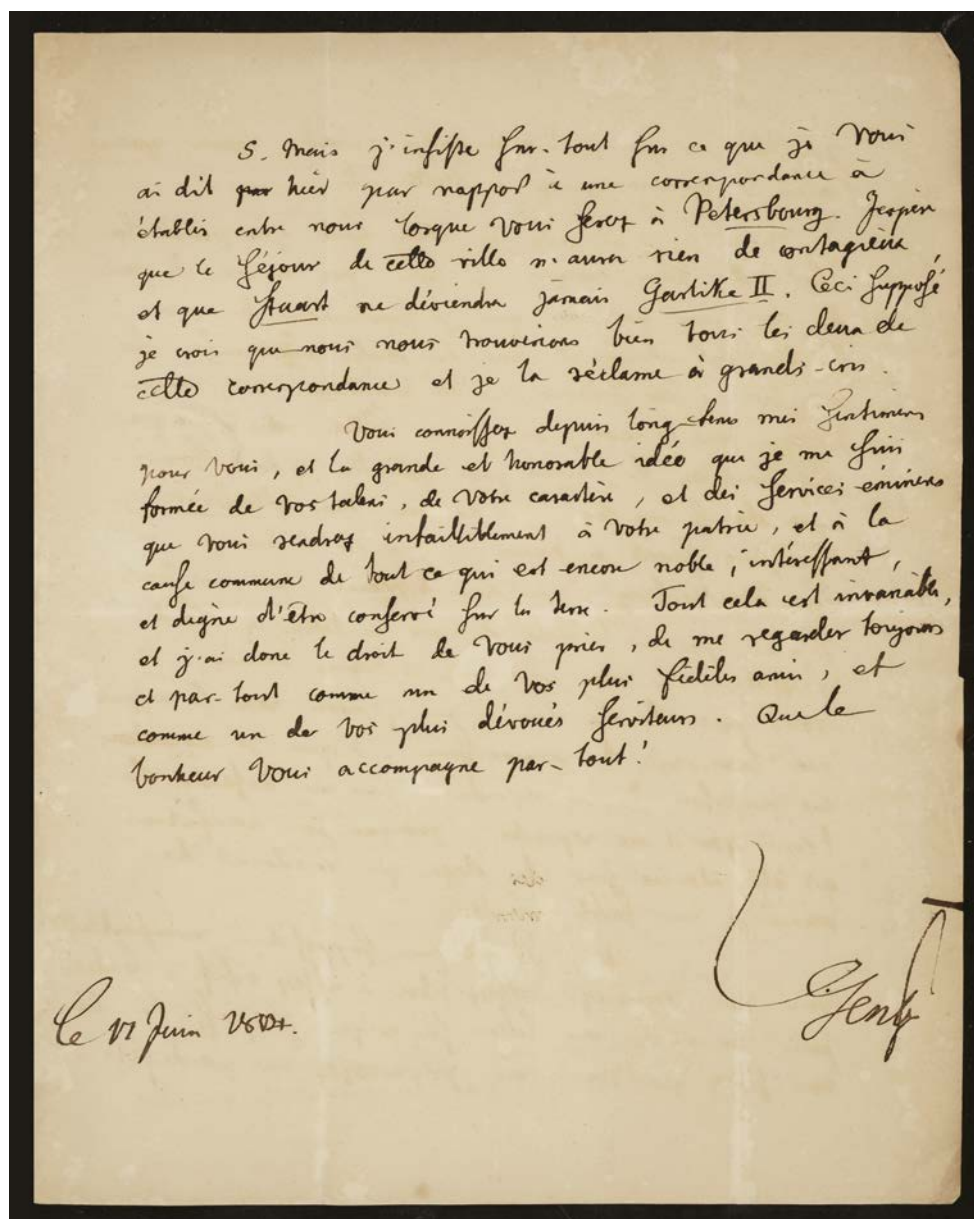 5. Mais j'insiste sur-tout sur ce que je Vous
ai dit hier par rapport à une correspondance à
établir entre nous lorsque Vous serez à Petersbourg. J'espère
que le séjour de cette ville n'aura rien de contagieux,
et que Stuart ne déviendra jamais Garlike II. Ceci supposé
je crois que nous nous trouverions bien tous les deux de
cette correspondance et je la réclame à grands-cris.
Vous connoissez depuis long-tems mes sentimens
pour Vous, et la grande et honorable idée que je me suis
formée de Vos talens, de Votre caractère, et des services éminens
que Vous rendrez infailliblement à Votre patrie, et à la
cause commune de tout ce qui est encore noble, intéressant,
et digne d'être conservé sur la terre. Tout cela est invariable,
et j'ai donc le droit de Vous prier, de me regarder toujours
et par-tout comme un de Vos plus fidèles amis, et
comme un de Vos plus dévoués serviteurs. Que le
bonheur Vous accompagne par-tout!
Gentz
Le Juin